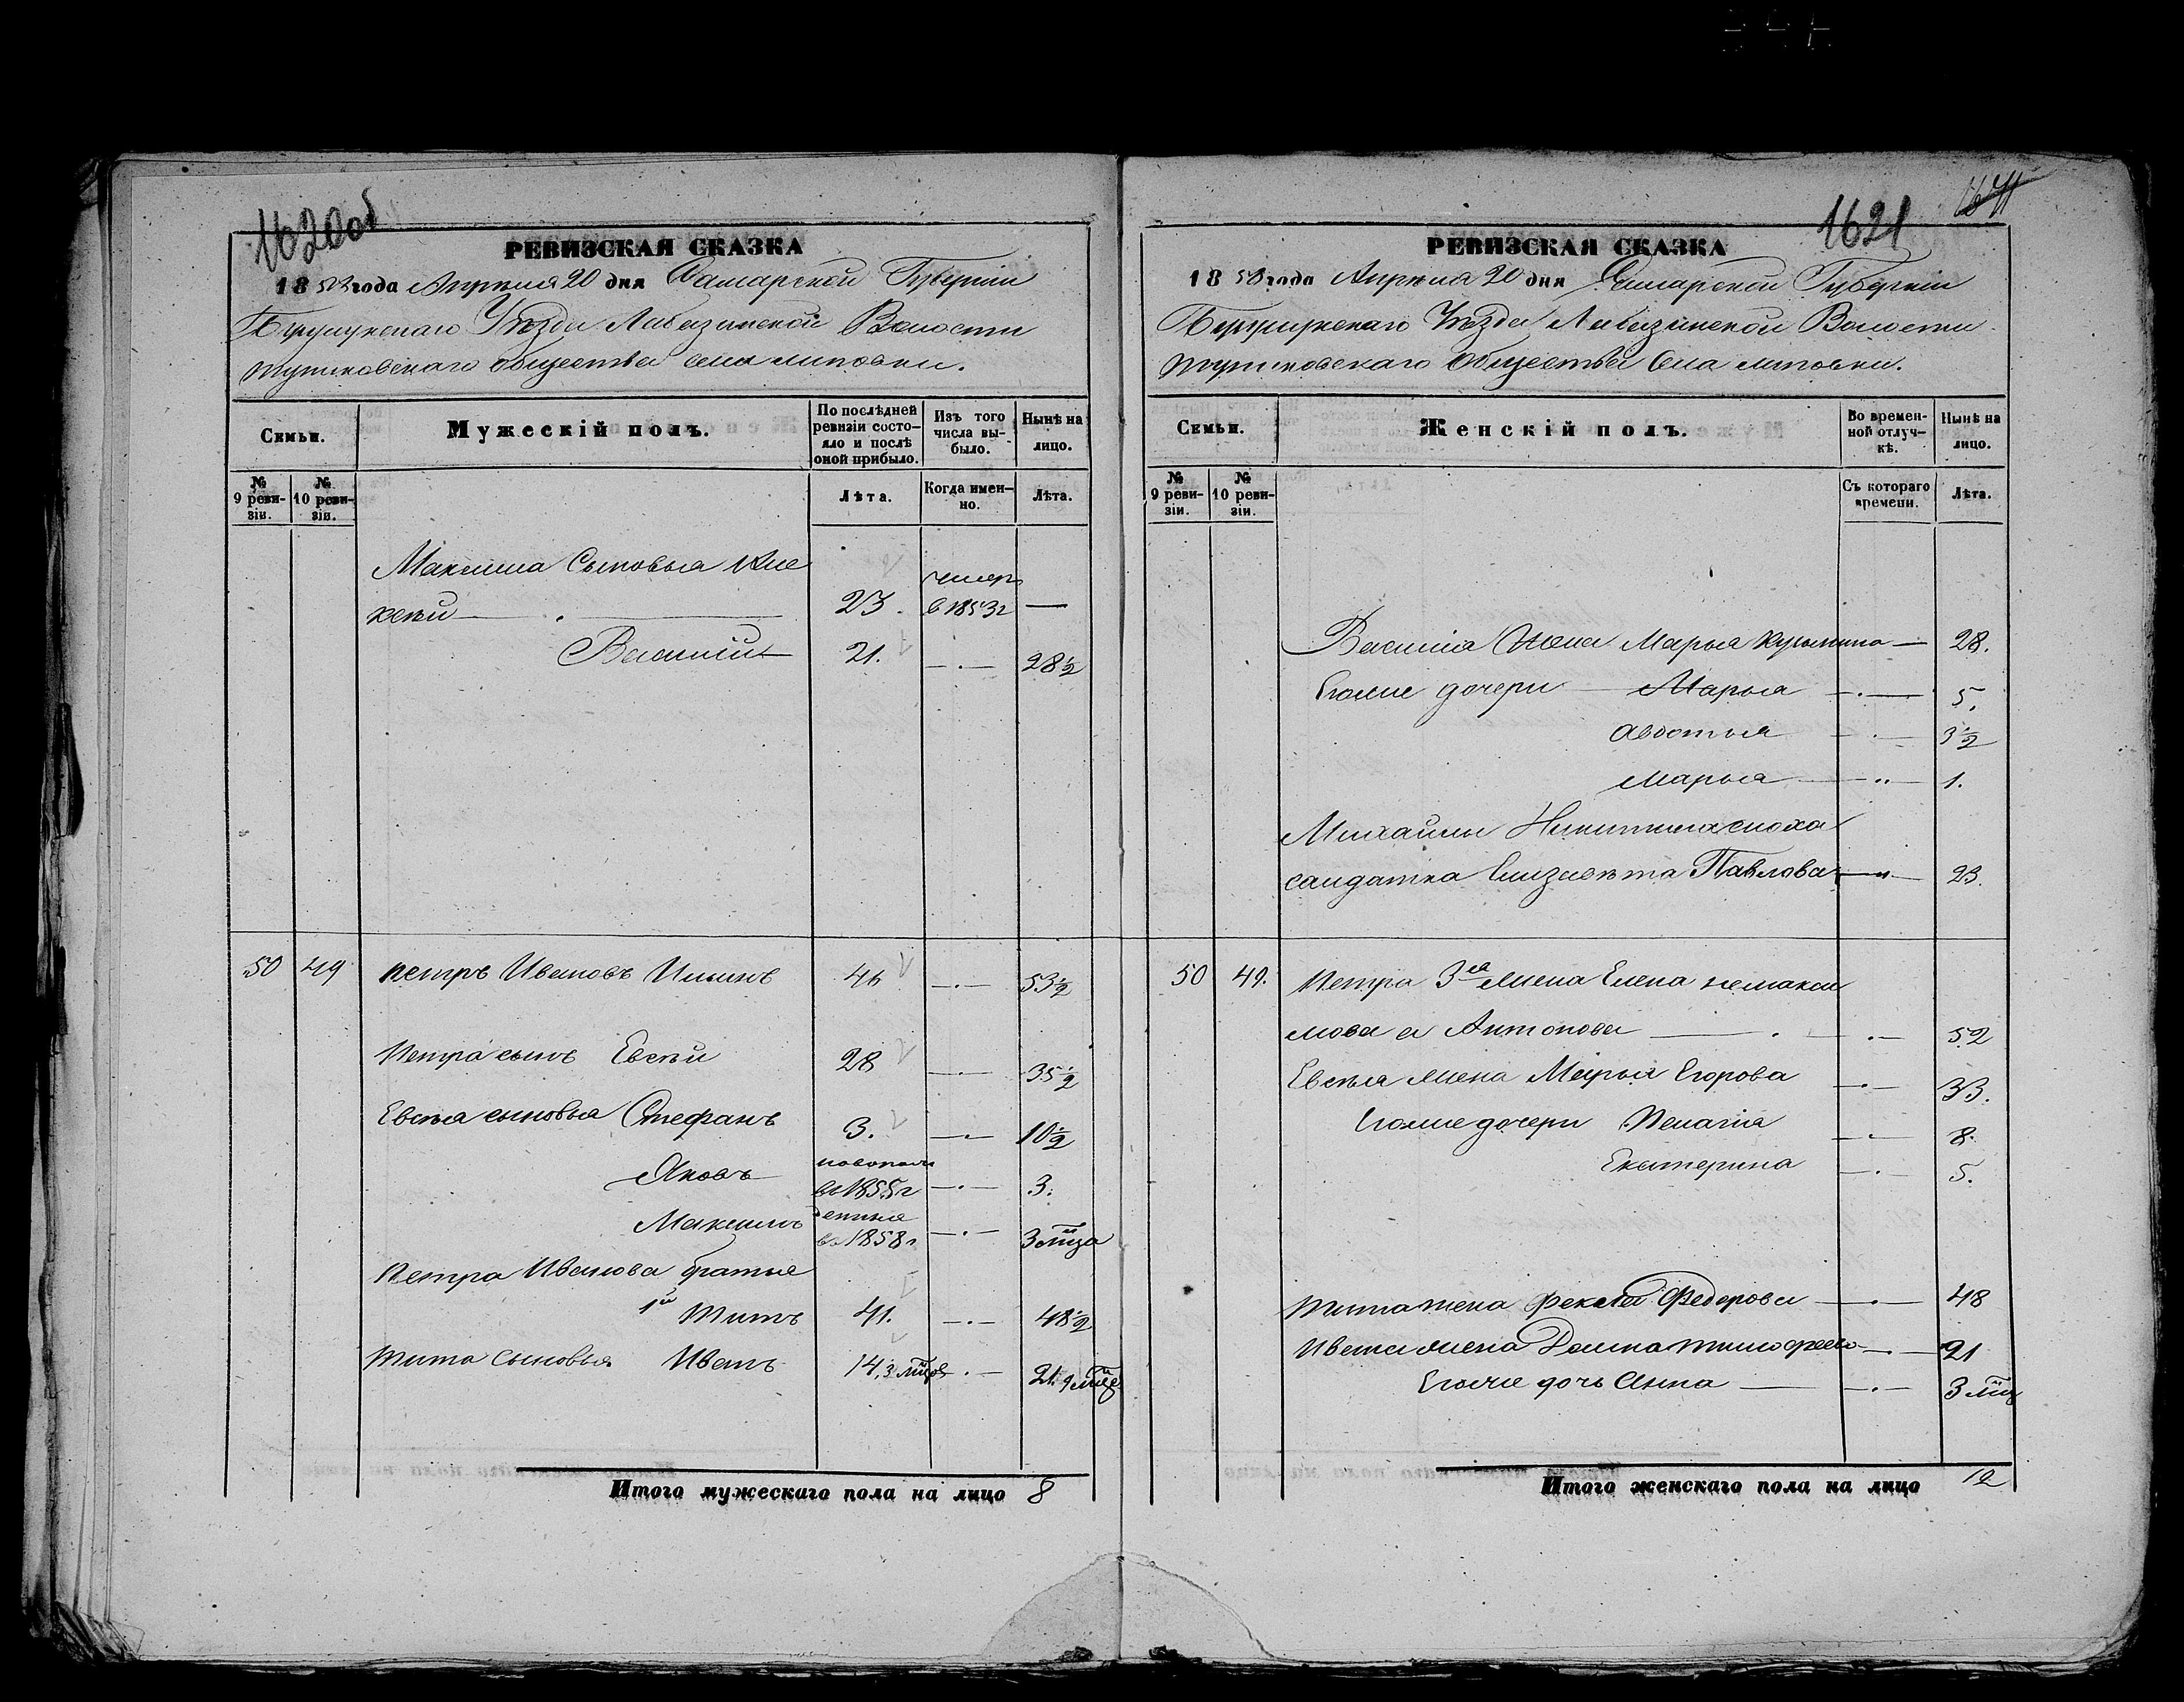 1620об
РЕВИЗСКАЯ СКАЗКА
1858 года Апрѣля 20 дня Самарской Губерніи
Бузулукскаго Уѣзда Лабазинской Волости
общества села Липовки.
Семьи.
Мужескій полъ.
По послѣдней ревизіи состояло и послѣ оной прибыло.
Изъ того числа выбыло.
Нынѣ на лицо.
№ 9 ревизіи.
№ 10 ревизіи.
Лѣта.
Когда именно.
Лѣта.
Максима Сыновья Але
ксѣй 23. умеръ в 1853 г —
Василій 21. 28½
50 49 Петръ Ивановъ Ильинъ 46 53½
Петра сынъ Евсѣй 28 35½
Евсѣя сыновья Стефанъ 3. 10½
Яковъ въ 1855 г 3.
Максимъ въ 1858 г 3 м̃ца
Петра Иванова братья
1й Титъ 41. 48½
Тита сыновья Иванъ 14, 3 21. 9
Итого мужескаго пола на лицо 8
1621
РЕВИЗСКАЯ СКАЗКА
1858 года Апрѣля 20 дня Самарской Губерніи
Бузулукскаго Уѣзда Лабазинской Волости
общества Села Липовки.
Семьи.
Женскій полъ.
Во временной отлучкѣ.
Нынѣ на лицо.
№ 9 ревизіи.
№ 10 ревизіи.
Съ котораго времени.
Лѣта.
Василія Жена Марья Кузьмина — 28.
Егоже дочери Марья 5.
Авдотья 3½
Марья 1.
Михайлы Никитина сноха
салдатка Елизавета Павлова 23.
50 49. Петра 3я жена Елена не Макси
мова а Антонова 52
Евсѣя жена Марья Егорова 33.
Егоже дочери Пелагія 8.
Екатерина 5.
Тита жена Фекла Федорова 48
Ивана жена Домна Тимофеева 21
Егоже дочь Анна 3 м̃ц
Итого женскаго пола на лицо 12